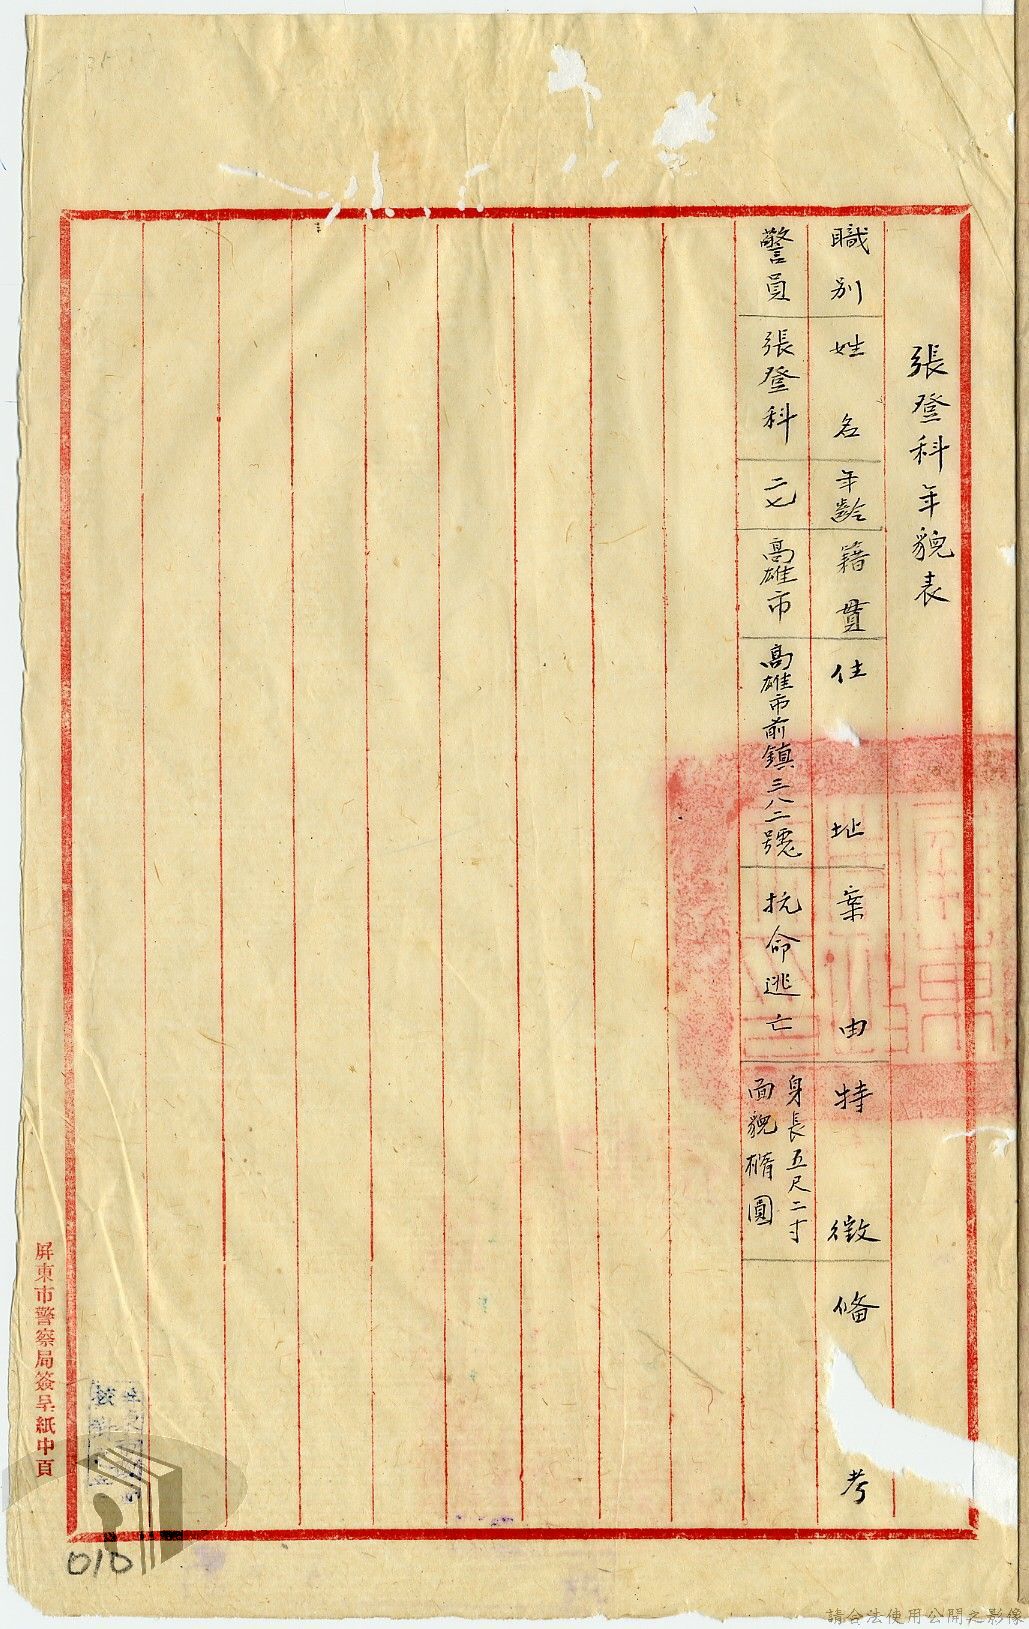 張登科年貌表
職別 姓名 年齡 籍貫 住址 案由 特徵 備考
警員 張登科 二七 高雄市 高雄市前鎮三八二號 抗命逃亡 身長五尺二寸
面貌橢圓
屏東市警察局簽呈紙中頁
010
請合法使用公開之影像